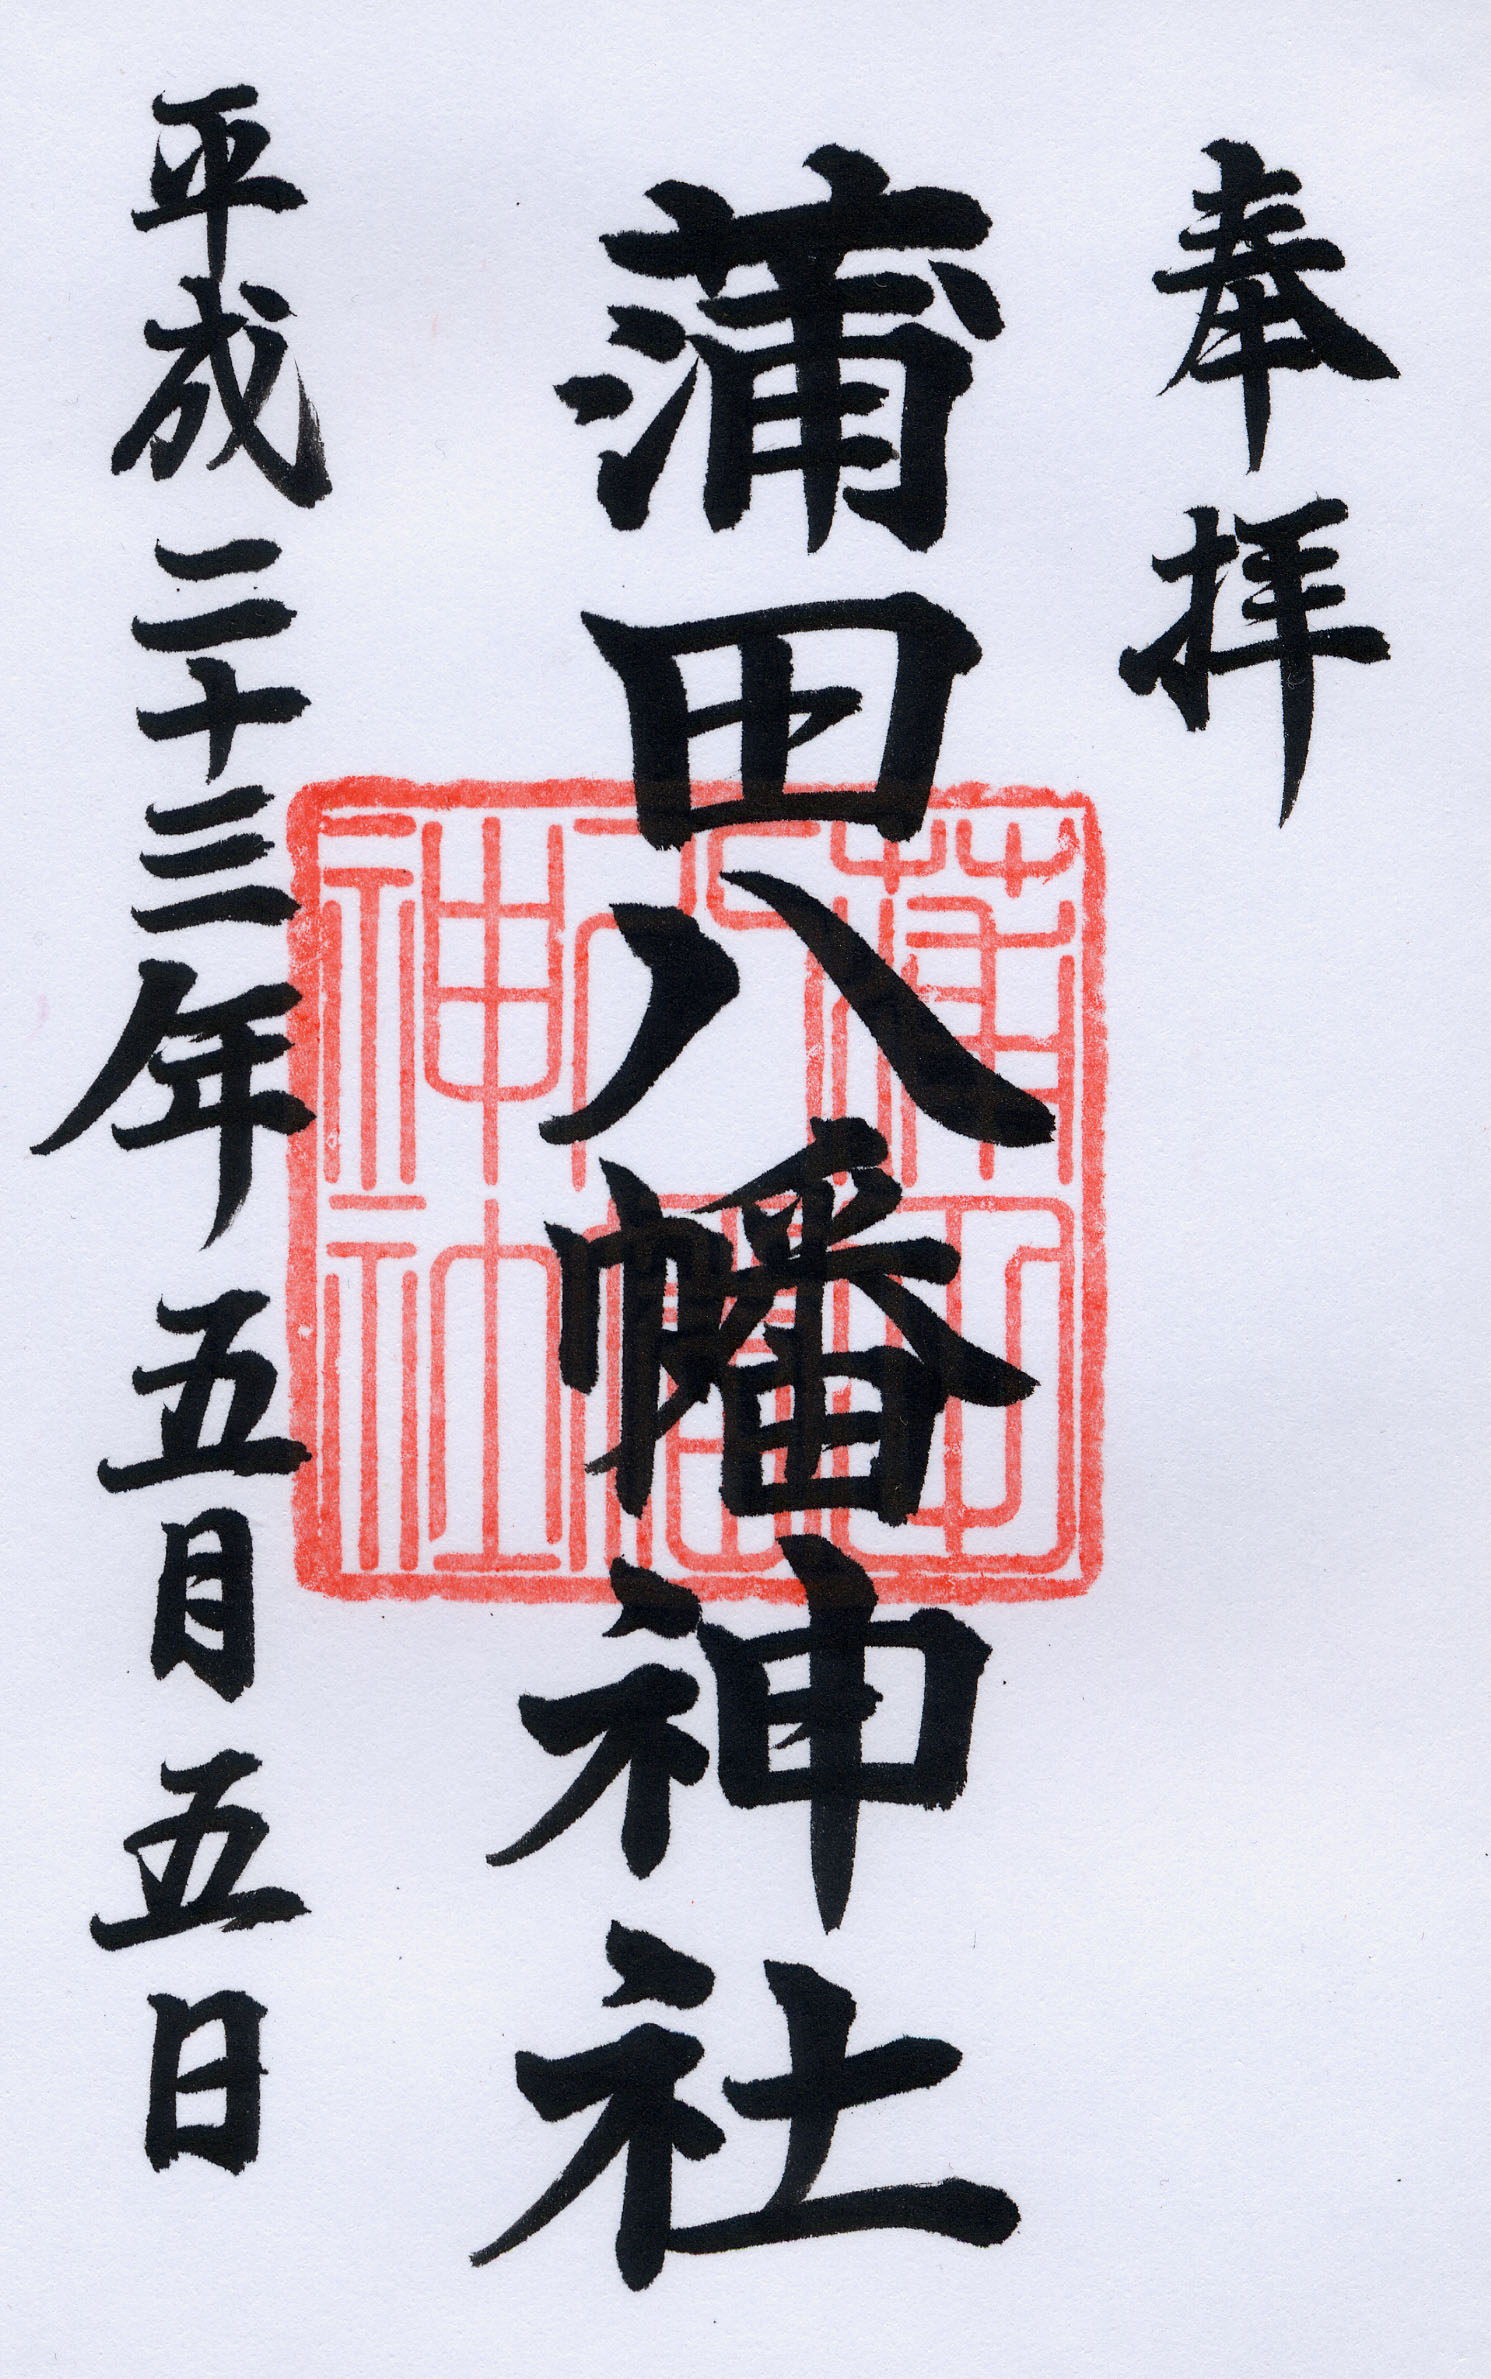 奉拝
蒲田八幡神社
平成二十三年五月五日
蒲田八幡神社